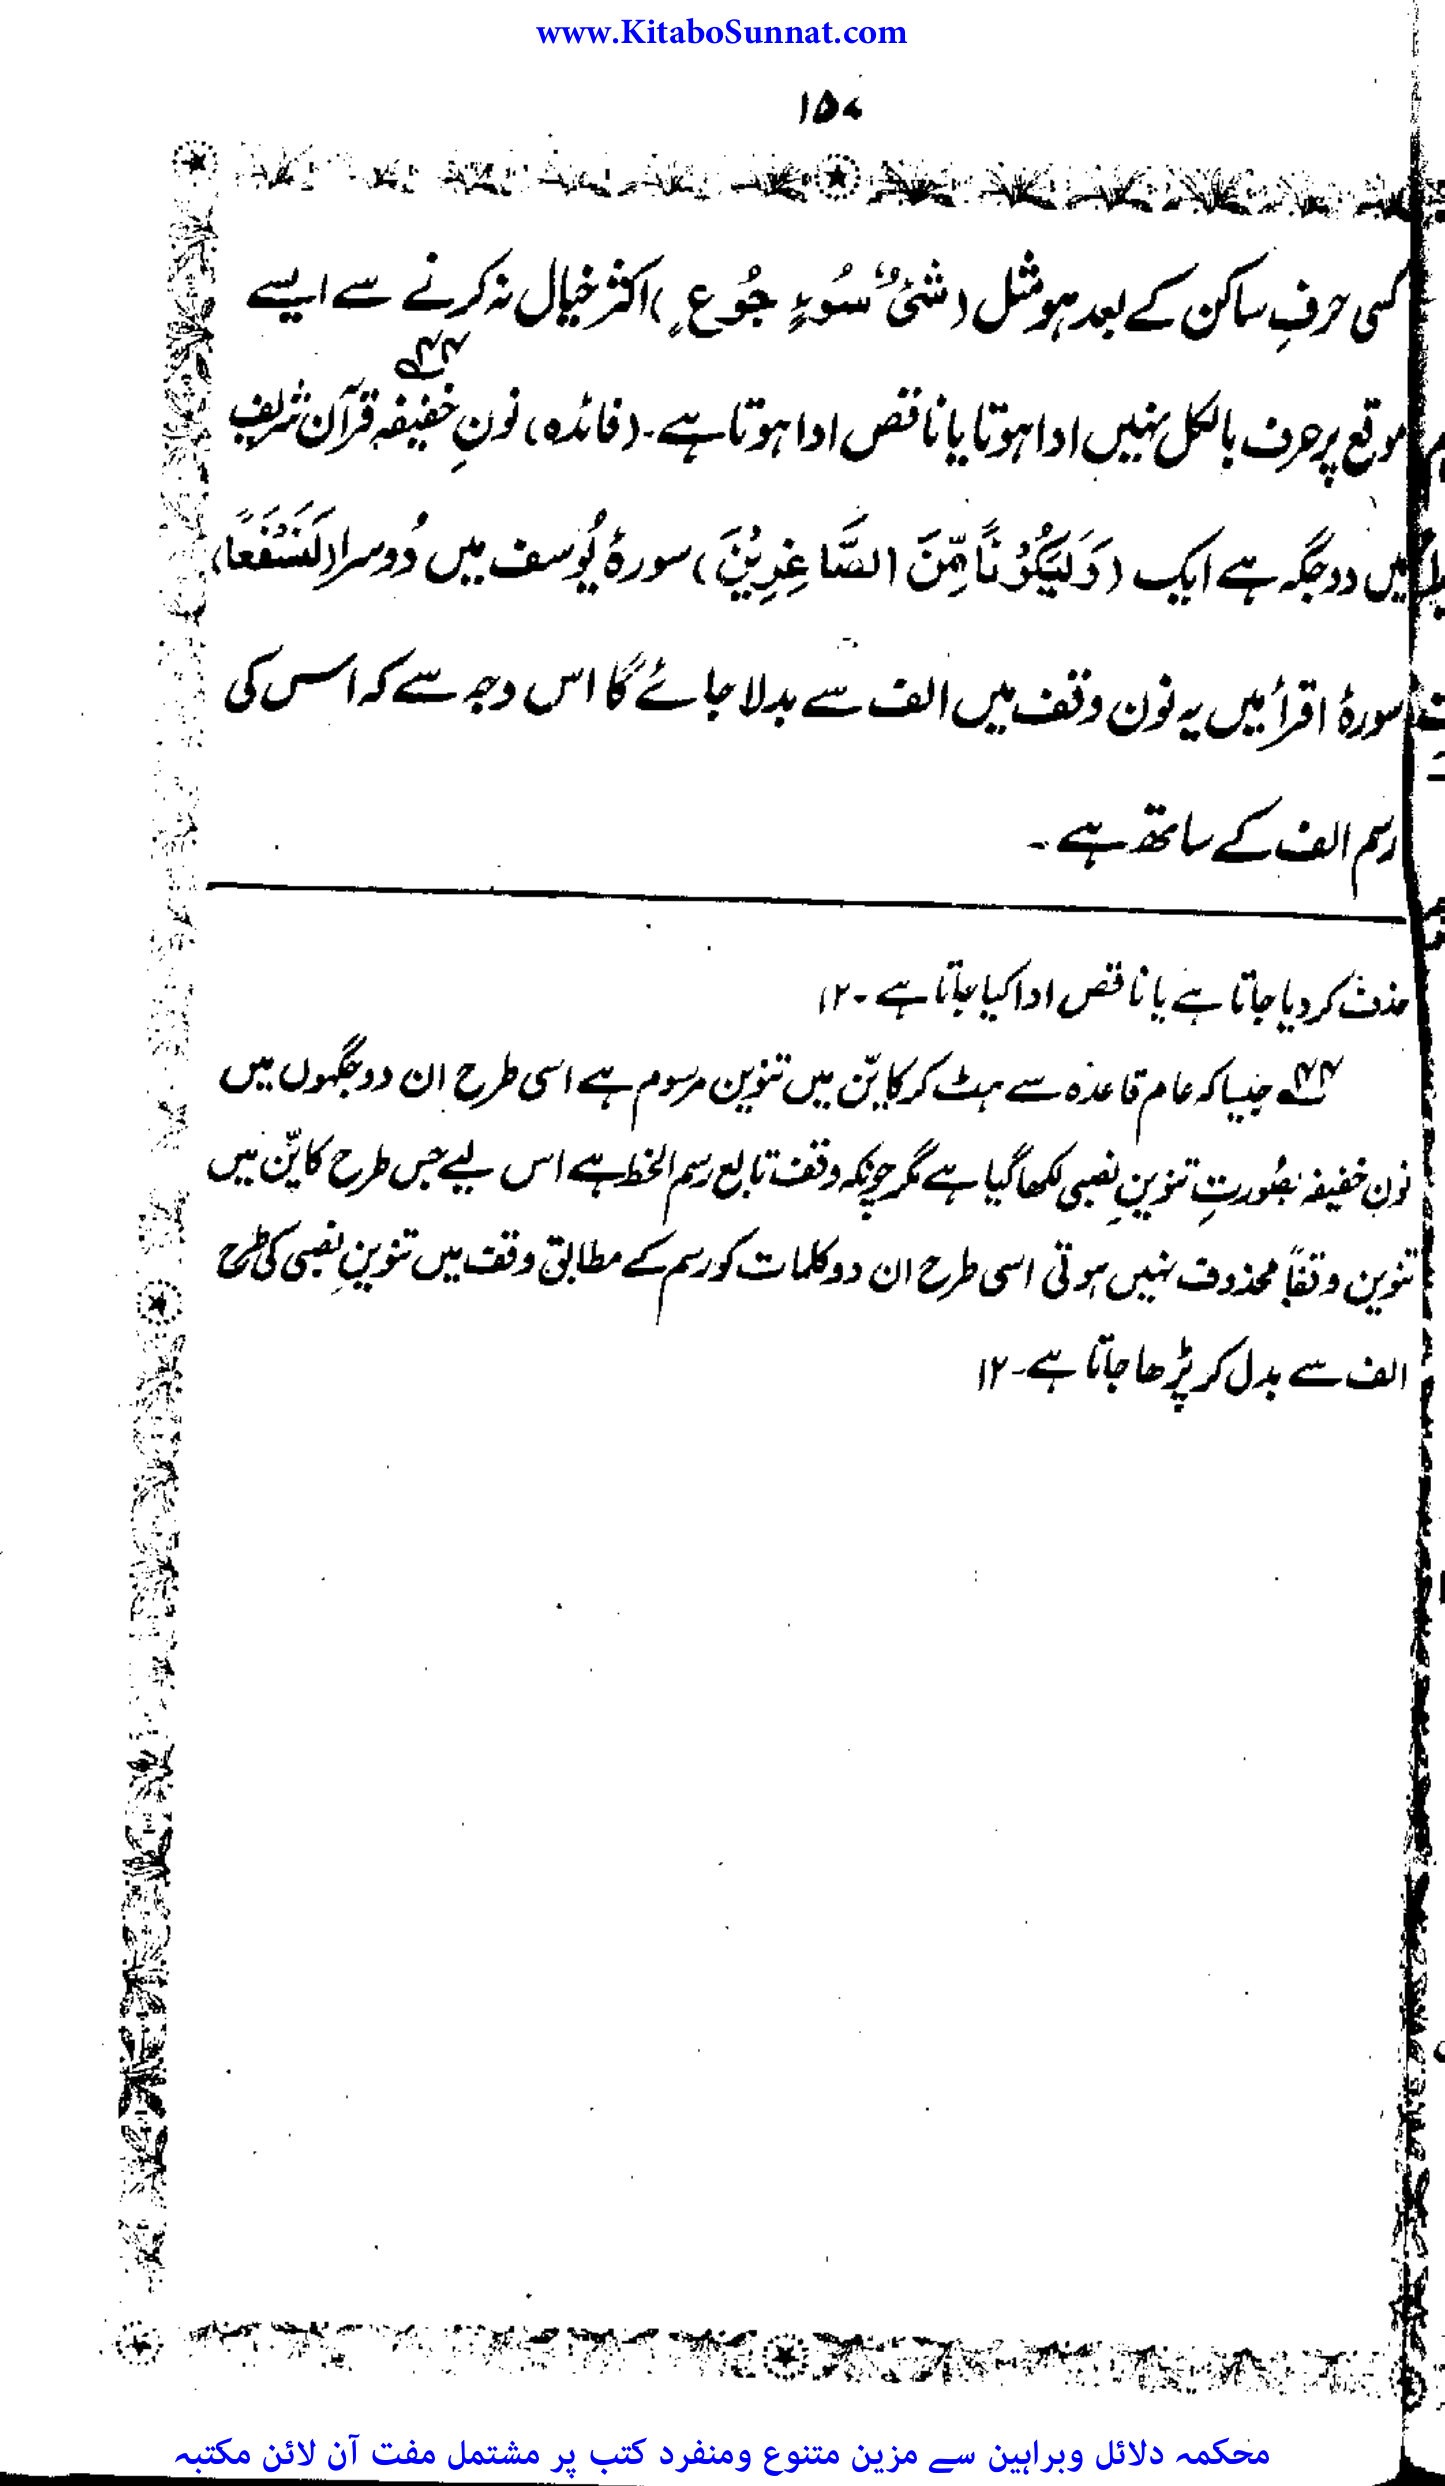 www.KitaboSunnat.com
۱۵۷
کسی حرفِ ساکن کے بعد ہو مثل (شَیْءٌ سُوْءٍ جُوْعٍ) اکثر خیال نہ کرنے سے ایسے
موقع پر حرف بالکل نہیں ادا ہوتا یا ناقص ادا ہوتا ہے۔ (فائدہ) نونِ خفیفہ ۴۴ قرآن شریف
میں دو جگہ ہے ایک (وَلَیَکُوْنًا مِّنَ الصَّاغِرِیْنَ) سورۂ یُوسف میں دُوسرا (لَنَسْفَعًا)
سورۂ اقرأ میں یہ نون وقف میں الف سے بدلا جائے گا اس وجہ سے کہ اس کی
رسم الف کے ساتھ ہے۔
حذف کر دیا جاتا ہے یا ناقص ادا کیا جاتا ہے۔ ۱۲
۴۴ جیسا کہ عام قاعدہ سے ہٹ کر کایّن میں تنوین مرسوم ہے اسی طرح ان دو جگہوں میں
نون خفیفہ بصُورتِ تنوینِ نصبی لکھا گیا ہے مگر چونکہ وقف تابع رسم الخط ہے اس لیے جس طرح کایّن میں
تنوین وقفاً محذوف نہیں ہوتی اسی طرح ان دو کلمات کو رسم کے مطابق وقف میں تنوینِ نصبی کی طرح
الف سے بدل کر پڑھا جاتا ہے۔ ۱۲
محکمہ دلائل وبراہین سے مزین متنوع ومنفرد کتب پر مشتمل مفت آن لائن مکتبہ